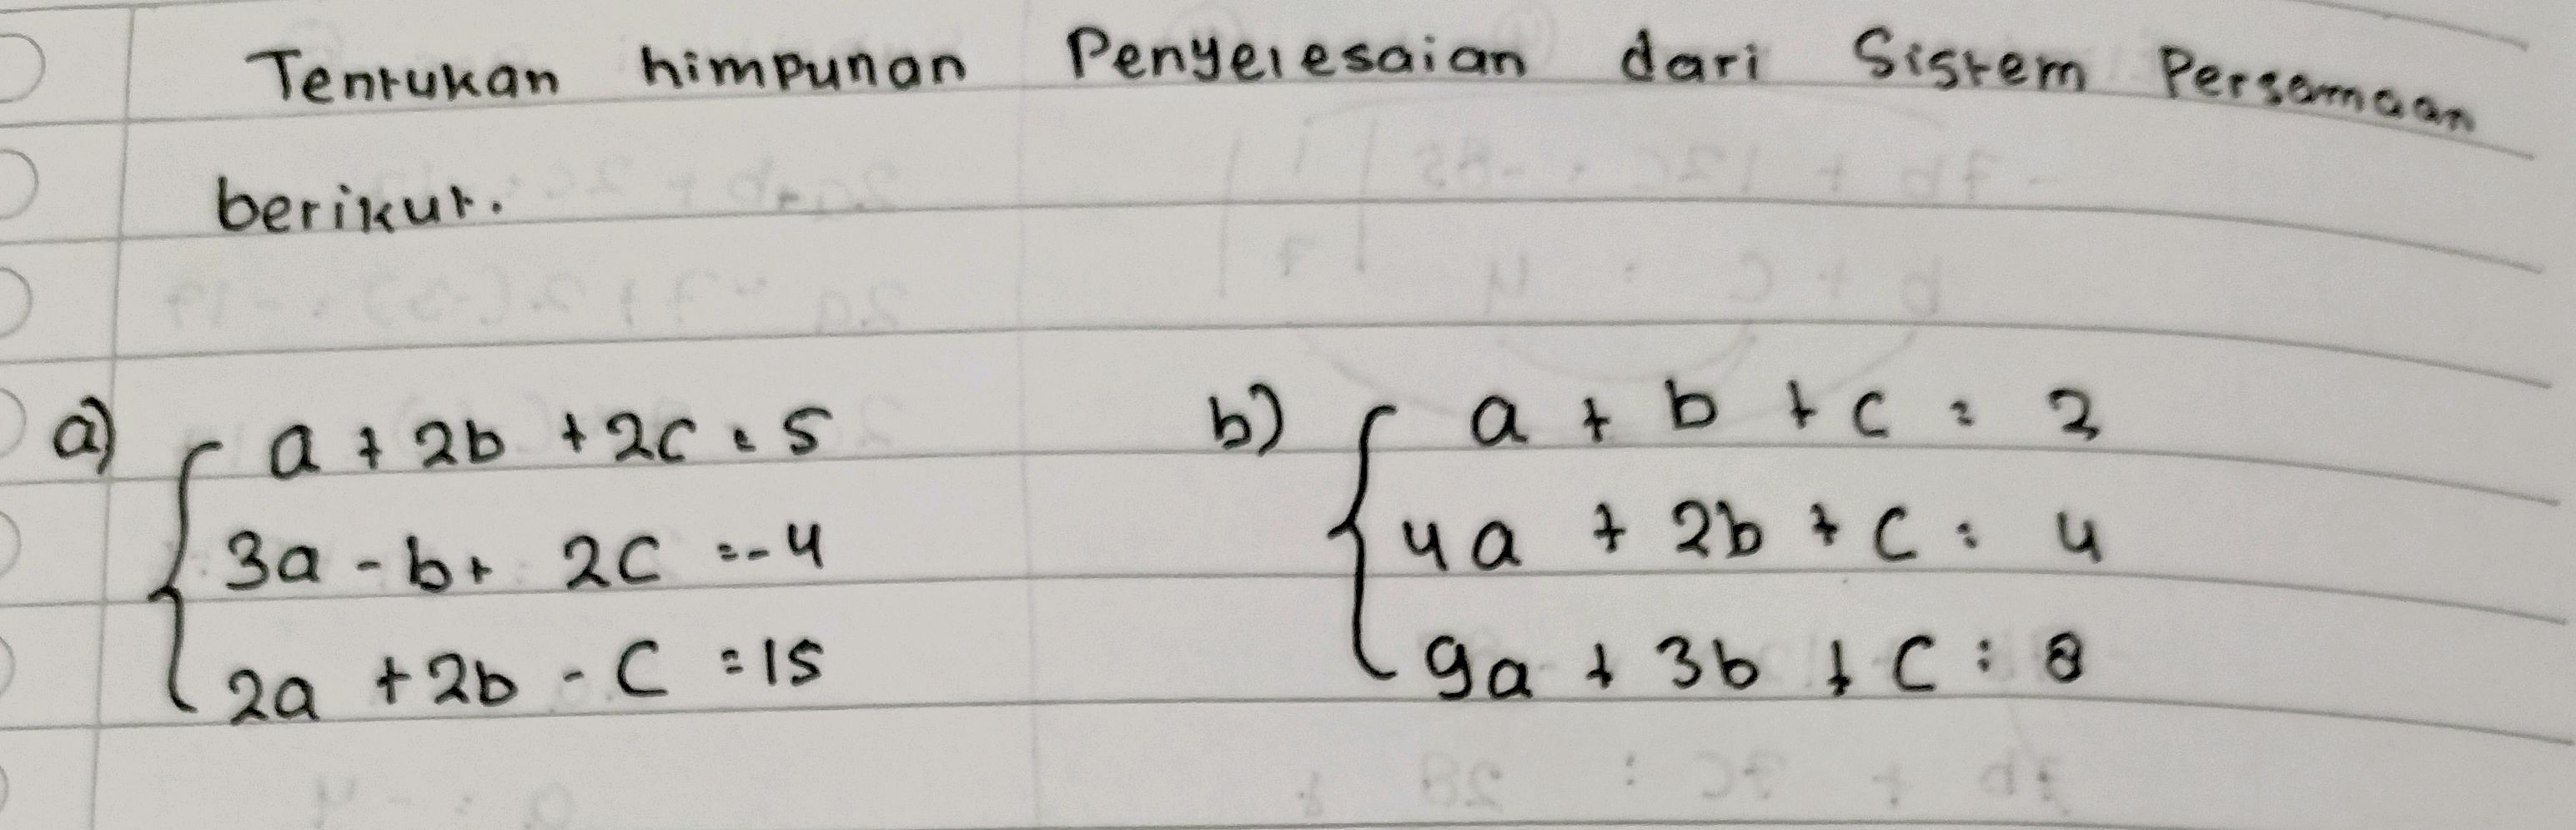 Tentukan himpunan Penyelesaian dari Sistem Persamaan
berikut.
a) a + 2b + 2c = 5
3a - b + 2c = -4
2a + 2b - c = 15
b) a + b + c = 2
4a + 2b + c = 4
9a + 3b + c = 8